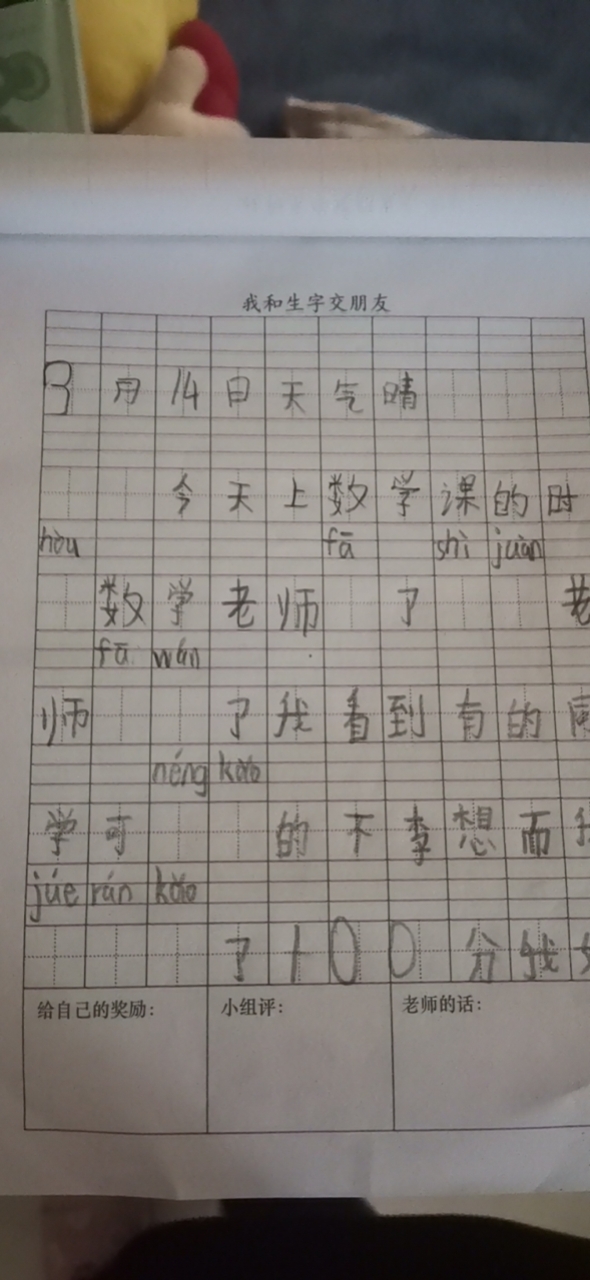 我和生字交朋友
3月14日天气晴
今天上数学课的时
hòu fā shì juàn
数学老师 了 老
fā wán
师 了我看到有的同
néng kǎo
学可 的不李想而我
júe rán kǎo
了100分我
给自己的奖励: 小组评: 老师的话: